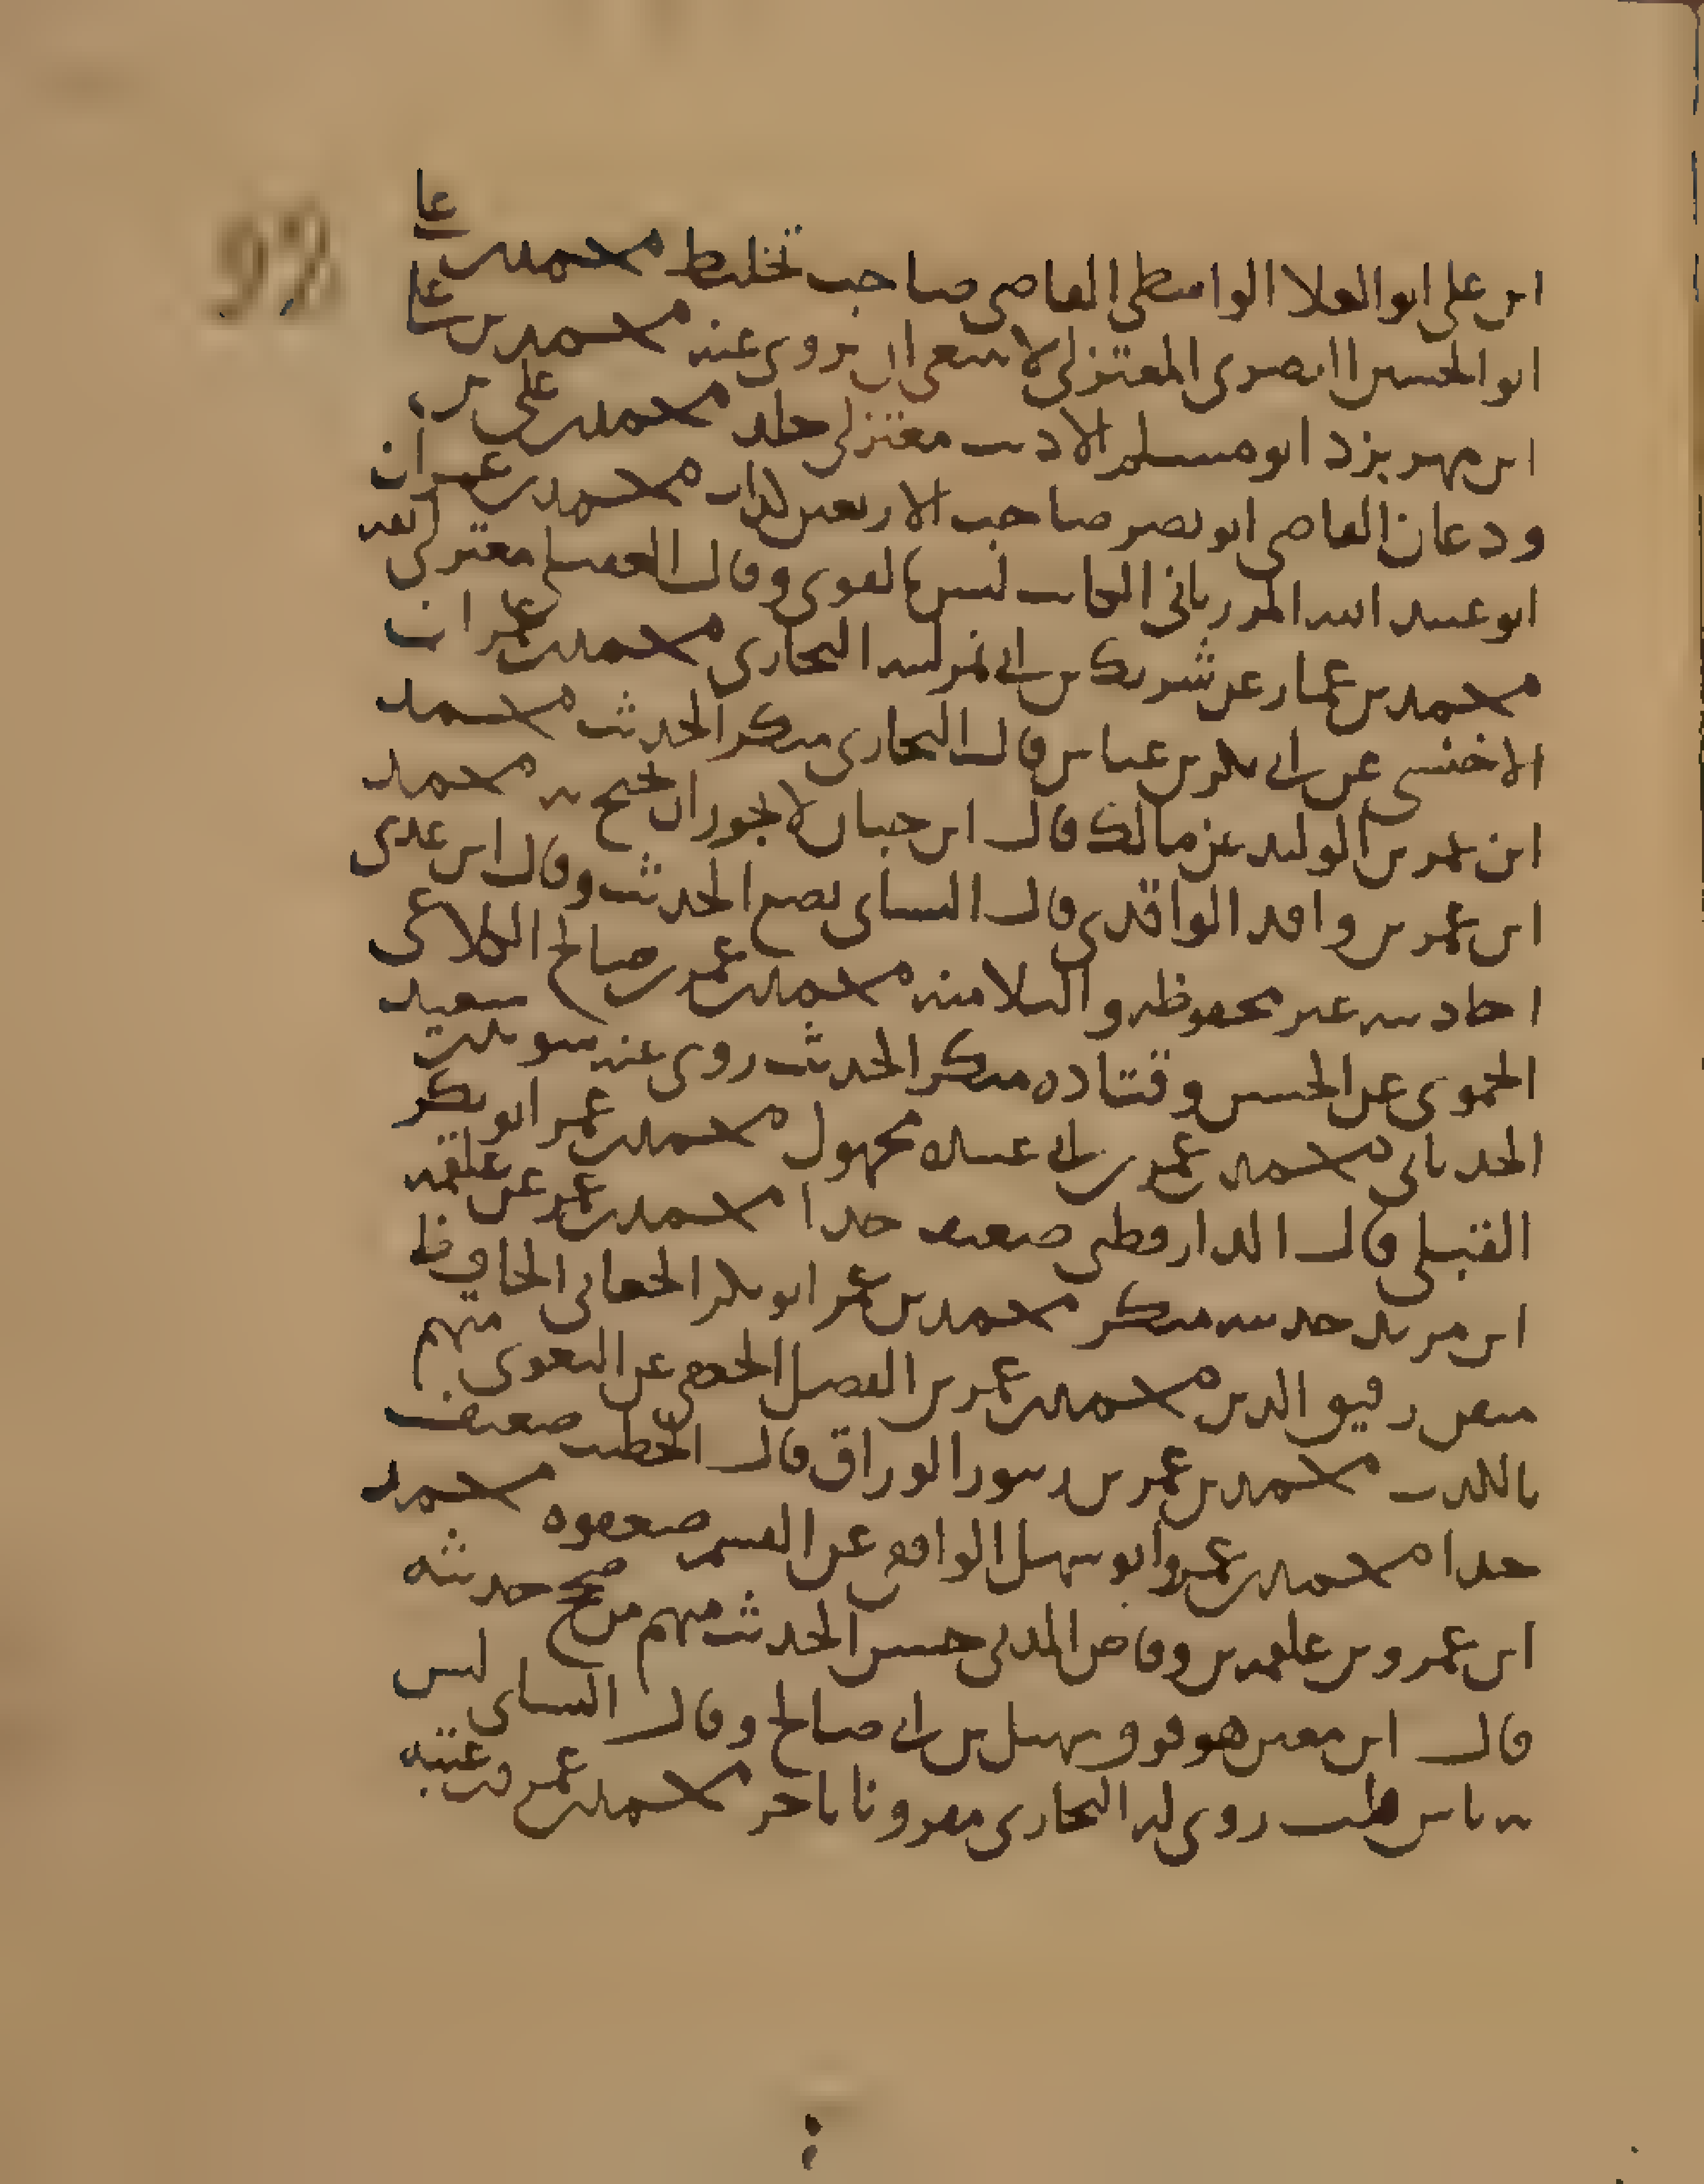 ابن علي ابو العلا الواسطي القاضي صاحب تخليط محمد بن علي
ابو الحسين البصري المعتزلي لا ينبغي ان يروى عنه محمد بن علي
ابن مهربزد ابو مسلم الاديب معتزلي جلد محمد بن علي بن
ودعان القاضي ابو نصر صاحب الاربعين كذاب محمد بن عمران
ابو عبيد الله المرزباني الكاتب ليس بالقوي وقال العتيقي معتزلي ثقة
محمد بن عمار عن شريك بن ابي نمر لينه البخاري محمد بن عمران
الاخنسي عن ابي بكر بن عياش قال البخاري منكر الحديث محمد
ابن عمر بن الوليد عن مالك قال ابن حبان لا يجوز ان يحتج به محمد
ابن عمر بن واقد الواقدي قال النساي يضع الحديث وقال ابن عدي
احاديثه غير محفوظه والبلا منه محمد بن عمر بن صالح الكلاعي
الحموي عن الحسن وقتاده منكر الحديث روى عنه سويد بن سعيد
الحدثاني محمد بن عمر بن ابي عبيده مجهول محمد بن عمر ابو بكر
القبلي قال الدارقطني ضعيف جدا محمد بن عمر عن علقمه
ابن مرثد حديثه منكر محمد بن عمر ابو بكر الجعابي الحافظ
رقيق الدين محمد بن عمر بن الفضل الجعفي عن البغوي متهم
بالكذب محمد بن عمر بن زنبور الوراق قال الخطيب ضعيف
جدا محمد بن عمرو ابو سهل الواقفي عن القسم ضعفوه محمد
ابن عمرو بن علقمه بن وقاص المدني حسن الحديث منهم من صحح حديثه
قال ابن معين هو فوق سهيل بن ابي صالح وقال النساي ليس
به باس قلت روى له البخاري مقرونا باخر محمد بن عمر بن عتبه